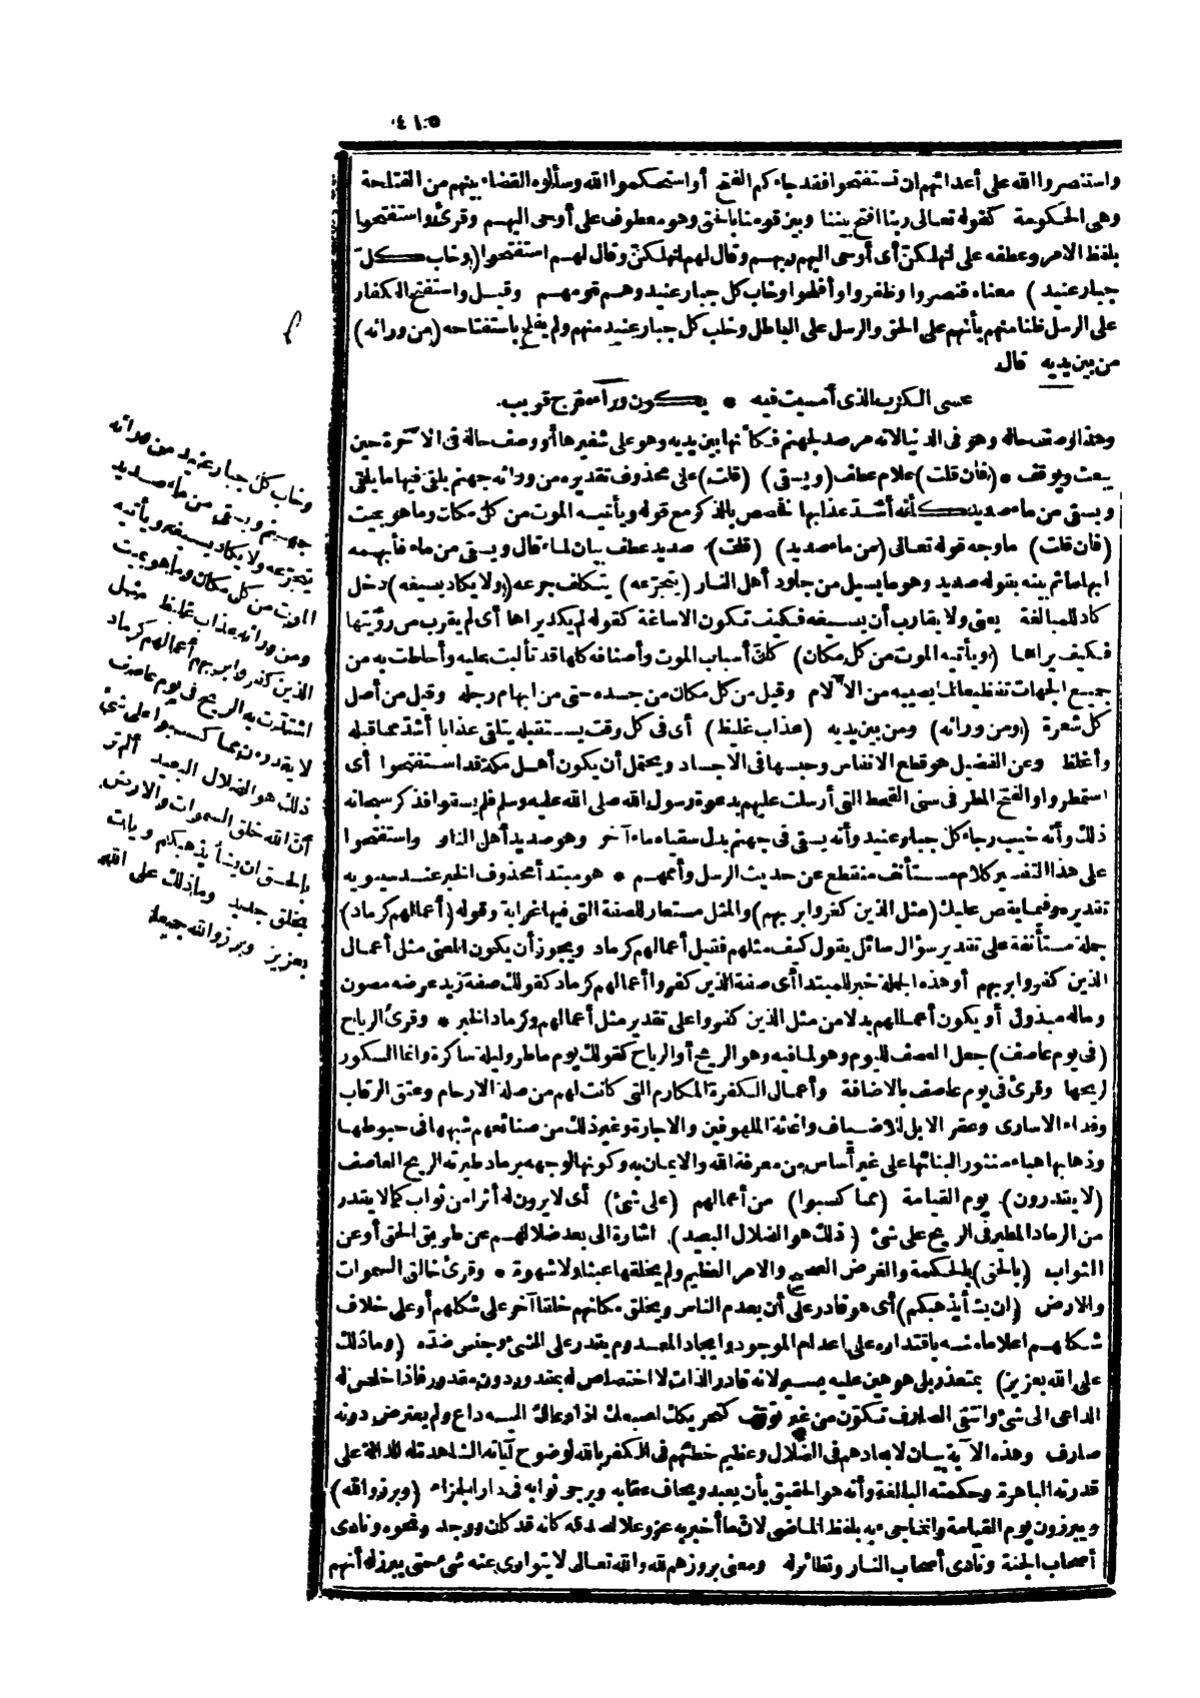 ٤١٥
واستنصروا الله على أعدائهم ان تستفتحوا فقد جاءكم الفتح أو استحكموا الله وسألوه القضاء بينهم من الفتاحة
وهى الحكومة كقوله تعالى ربنا افتح بيننا وبين قومنا بالحق وهو معطوف على أوحى اليهم وقرئ واستفتحوا
بلفظ الامر وعطفه على لنهلكنّ أى أوحى اليهم ربهم وقال لهم لنهلكنّ وقال لهم استفتحوا (وخاب كلّ
جبار عنيد) معناه فنصروا وظفروا وأفلحوا وخاب كل جبار عنيد وهم قومهم وقيل واستفتح الكفار
على الرسل ظنا منهم بأنهم على الحق والرسل على الباطل وخاب كل جبار عنيد منهم ولم يفلح باستفتاحه (من ورائه)
من بين يديه قال
عسى الكرب الذى أمسيت فيه * يكون وراءه فرج قريب
وهذا وصف حاله وهو فى الدنيا لانه مرصد لجهنم فكأنها بين يديه وهو على شفيرها أو وصف حاله فى الآخرة حين
يبعث ويوقف * (فان قلت) علام عطف (ويسقى) (قلت) على محذوف تقديره من ورائه جهنم يلقى فيها ما يلقى
ويسقى من ماء صديد كأنه أشدّ عذابها فخصص بالذكر مع قوله ويأتيه الموت من كل مكان وما هو بميت
(فان قلت) ما وجه قوله تعالى (من ماء صديد) (قلت) صديد عطف بيان لماء قال ويسقى من ماء فأبهمه
ابهاما ثم بينه بقوله صديد وهو ما يسيل من جلود أهل النار (يتجرّعه) يتكلف جرعه (ولا يكاد يسيغه) دخل
كاد للمبالغة يعنى ولا يقارب أن يسيغه فكيف تكون الاساغة كقوله لم يكد يراها أى لم يقرب من رؤيتها
فكيف يراها (ويأتيه الموت من كل مكان) كأنّ أسباب الموت وأصنافه كلها قد تألبت عليه وأحاطت به من
جميع الجهات تفظيعا لما يصيبه من الآلام وقيل من كل مكان من جسده حتى من ابهام رجله وقيل من أصل
كل شعرة (ومن ورائه) ومن بين يديه (عذاب غليظ) أى فى كل وقت يستقبله يتلقى عذابا أشدّ مما قبله
وأغلظ وعن الفضيل هو قطع الانفاس وحبسها فى الاجساد ويحتمل أن يكون أهل مكة قد استفتحوا أى
استمطروا والفتح المطر فى سنى القحط التى أرسلت عليهم بدعوة رسول الله صلى الله عليه وسلم فلم يسقوا فذكر سبحانه
ذلك وأنه خيب رجاء كل جبار عنيد وأنه يسقى فى جهنم بدل سقياه ماء آخر وهو صديد أهل النار واستفتحوا
على هذا التفسير كلام مستأنف منقطع عن حديث الرسل وأممهم * هو مبتدأ محذوف الخبر عند سيبويه
تقديره وفيما يقص عليك (مثل الذين كفروا بربهم) والمثل مستعار للصفة التى فيها غرابة وقوله (أعمالهم كرماد)
جملة مستأنفة على تقدير سؤال سائل يقول كيف مثلهم فقيل أعمالهم كرماد ويجوز أن يكون المعنى مثل أعمال
الذين كفروا بربهم أو هذه الجملة خبر للمبتدا أى صفة الذين كفروا أعمالهم كرماد كقولك صفة زيد عرضه مصون
وماله مبذول أو يكون أعمالهم بدلا من مثل الذين كفروا على تقدير مثل أعمالهم وكرماد الخبر * وقرئ الرياح
(فى يوم عاصف) جعل العصف لليوم وهو لما فيه وهو الريح أو الرياح كقولك يوم ماطر وليلة ساكرة وانما السكور
لريحها وقرئ فى يوم عاصف بالاضافة وأعمال الكفرة المكارم التى كانت لهم من صلة الارحام وعتق الرقاب
وفداء الاسارى وعقر الابل للاضياف واغاثة الملهوفين والاجارة وغير ذلك من صنائعهم شبهها فى حبوطها
وذهابها هباء منثورا لبنائها على غير أساس من معرفة الله والايمان به وكونها لوجهه برماد طيرته الريح العاصف
(لا يقدرون) يوم القيامة (مما كسبوا) من أعمالهم (على شئ) أى لا يرون له أثرا من ثواب كما لا يقدر
من الرماد المطير فى الريح على شئ (ذلك هو الضلال البعيد) اشارة الى بعد ضلالهم عن طريق الحق أو عن
الثواب (بالحق) بالحكمة والغرض الصحيح والامر العظيم ولم يخلقها عبثا ولا شهوة * وقرئ خالق السموات
والارض (ان يشأ يذهبكم) أى هو قادر على أن يعدم الناس ويخلق مكانهم خلقا آخر على شكلهم أو على خلاف
شكلهم اعلاما منه باقتداره على اعدام الموجود وايجاد المعدوم يقدر على الشئ وجنس ضدّه (وما ذلك
على الله بعزيز) بمتعذر بل هو هين عليه يسير لانه قادر الذات لا اختصاص له بمقدور دون مقدور فاذا خلص له
الداعى الى شئ وانتفى الصارف تكوّن من غير توقف كتحريك اصبعك اذا دعاك اليه داع ولم يعترض دونه
صارف وهذه الآية بيان لابعادهم فى الضلال وعظيم خطئهم فى الكفر بالله لوضوح آياته الشاهدة له الدالة على
قدرته الباهرة وحكمته البالغة وأنه هو الحقيق بأن يعبد ويخاف عقابه ويرجو ثوابه فى دار الجزاء (وبرزوا لله)
ويبرزون يوم القيامة وانما جىء به بلفظ الماضى لانّ ما أخبر به عز وعلا لصدقه كانه قد كان ووجد ونحوه ونادى
أصحاب الجنة ونادى أصحاب النار ونظائر له ومعنى بروزهم لله والله تعالى لا يتوارى عنه شئ حتى يبرز له أنهم
وخاب كل جبار عنيد من ورائه
جهنم ويسقى من ماء صديد
يتجرّعه ولا يكاد يسيغه ويأتيه
الموت من كل مكان وما هو بميت
ومن ورائه عذاب غليظ مثل
الذين كفروا بربهم أعمالهم كرماد
اشتدّت به الريح فى يوم عاصف
لا يقدرون مما كسبوا على شئ
ذلك هو الضلال البعيد ألم تر
أنّ الله خلق السموات والارض
بالحق ان يشأ يذهبكم ويأت
بخلق جديد وما ذلك على الله
بعزيز وبرزوا لله جميعا